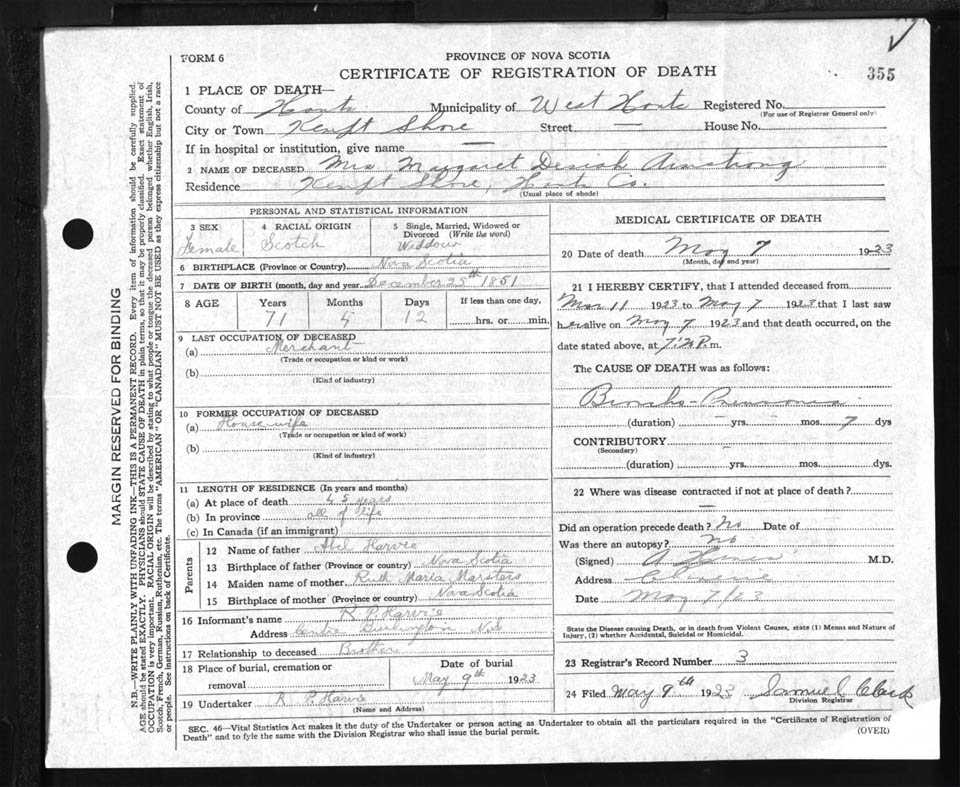 FORM 6
PROVINCE OF NOVA SCOTIA
CERTIFICATE OF REGISTRATION OF DEATH
355
1 PLACE OF DEATH—
County of Hants Municipality of West Hants Registered No.
(For use of Registrar General only)
City or Town Kempt Shore Street — House No.
If in hospital or institution, give name —
2 NAME OF DECEASED Mrs Margaret Armstrong
Residence Kempt Shore, Hants Co.
(Usual place of abode)
PERSONAL AND STATISTICAL INFORMATION
3 SEX
Female
4 RACIAL ORIGIN
Scotch
5 Single, Married, Widowed or
Divorced (Write the word)
Widdow
6 BIRTHPLACE (Province or Country) Nova Scotia
7 DATE OF BIRTH (month, day and year) December 25th 1851
8 AGE Years Months Days If less than one day,
71 4 12 hrs. or min.
9 LAST OCCUPATION OF DECEASED
(a) Merchant
(Trade or occupation or kind or work)
(b)
(Kind of industry)
10 FORMER OCCUPATION OF DECEASED
(a) House wife
(Trade or occupation or kind of work)
(b)
(Kind of industry)
11 LENGTH OF RESIDENCE (In years and months)
(a) At place of death 45 years
(b) In province all of life
(c) In Canada (if an immigrant)
Parents
12 Name of father Abel Harvie
13 Birthplace of father (Province or country) Nova Scotia
14 Maiden name of mother Ruth Maria Marsters
15 Birthplace of mother (Province or country) Nova Scotia
16 Informant's name R P. Harvie
Address Centre Burlington N.S
17 Relationship to deceased Brother
18 Place of burial, cremation or
removal
Date of burial
May 9th 1923
19 Undertaker R P. Harvie
(Name and Address)
MEDICAL CERTIFICATE OF DEATH
20 Date of death May 7 1923
(Month, day and year)
21 I HEREBY CERTIFY, that I attended deceased from
Mar 11 1923 to May 7 1923 that I last saw
her alive on May 7 1923 and that death occurred, on the
date stated above, at P.m.
The CAUSE OF DEATH was as follows:
Broncho-Pneumonia
(duration) — yrs. — mos. 7 dys
CONTRIBUTORY —
(Secondary)
(duration) yrs. mos. dys.
22 Where was disease contracted if not at place of death?
—
Did an operation precede death? No Date of
Was there an autopsy? no
(Signed) M.D.
Address
Date May 7/23
State the Disease causing Death, or in death from Violent Causes, state (1) Means and Nature of
Injury, (2) whether Accidental, Suicidal or Homicidal.
23 Registrar's Record Number 3
24 Filed May 9th 1923 Samuel Clark
Division Registrar
SEC. 46—Vital Statistics Act makes it the duty of the Undertaker or person acting as Undertaker to obtain all the particulars required in the "Certificate of Registration of
Death" and to fyle the same with the Division Registrar who shall issue the burial permit.
(OVER)
MARGIN RESERVED FOR BINDING
N.B.—WRITE PLAINLY WITH UNFADING INK—THIS IS A PERMANENT RECORD. Every item of information should be carefully supplied.
AGE should be stated EXACTLY. PHYSICIANS should STATE CAUSE OF DEATH in plain terms, so that it may be properly classified. Exact statement of
OCCUPATION is very important. RACIAL ORIGIN will be described by stating to what people or tongue the deceased person belonged whether English, Irish,
Scotch, French, German, Russian, Ruthenian, etc. The terms "AMERICAN" OR "CANADIAN" MUST NOT BE USED as they express citizenship but not a race
or people. See instructions on back of Certificate.